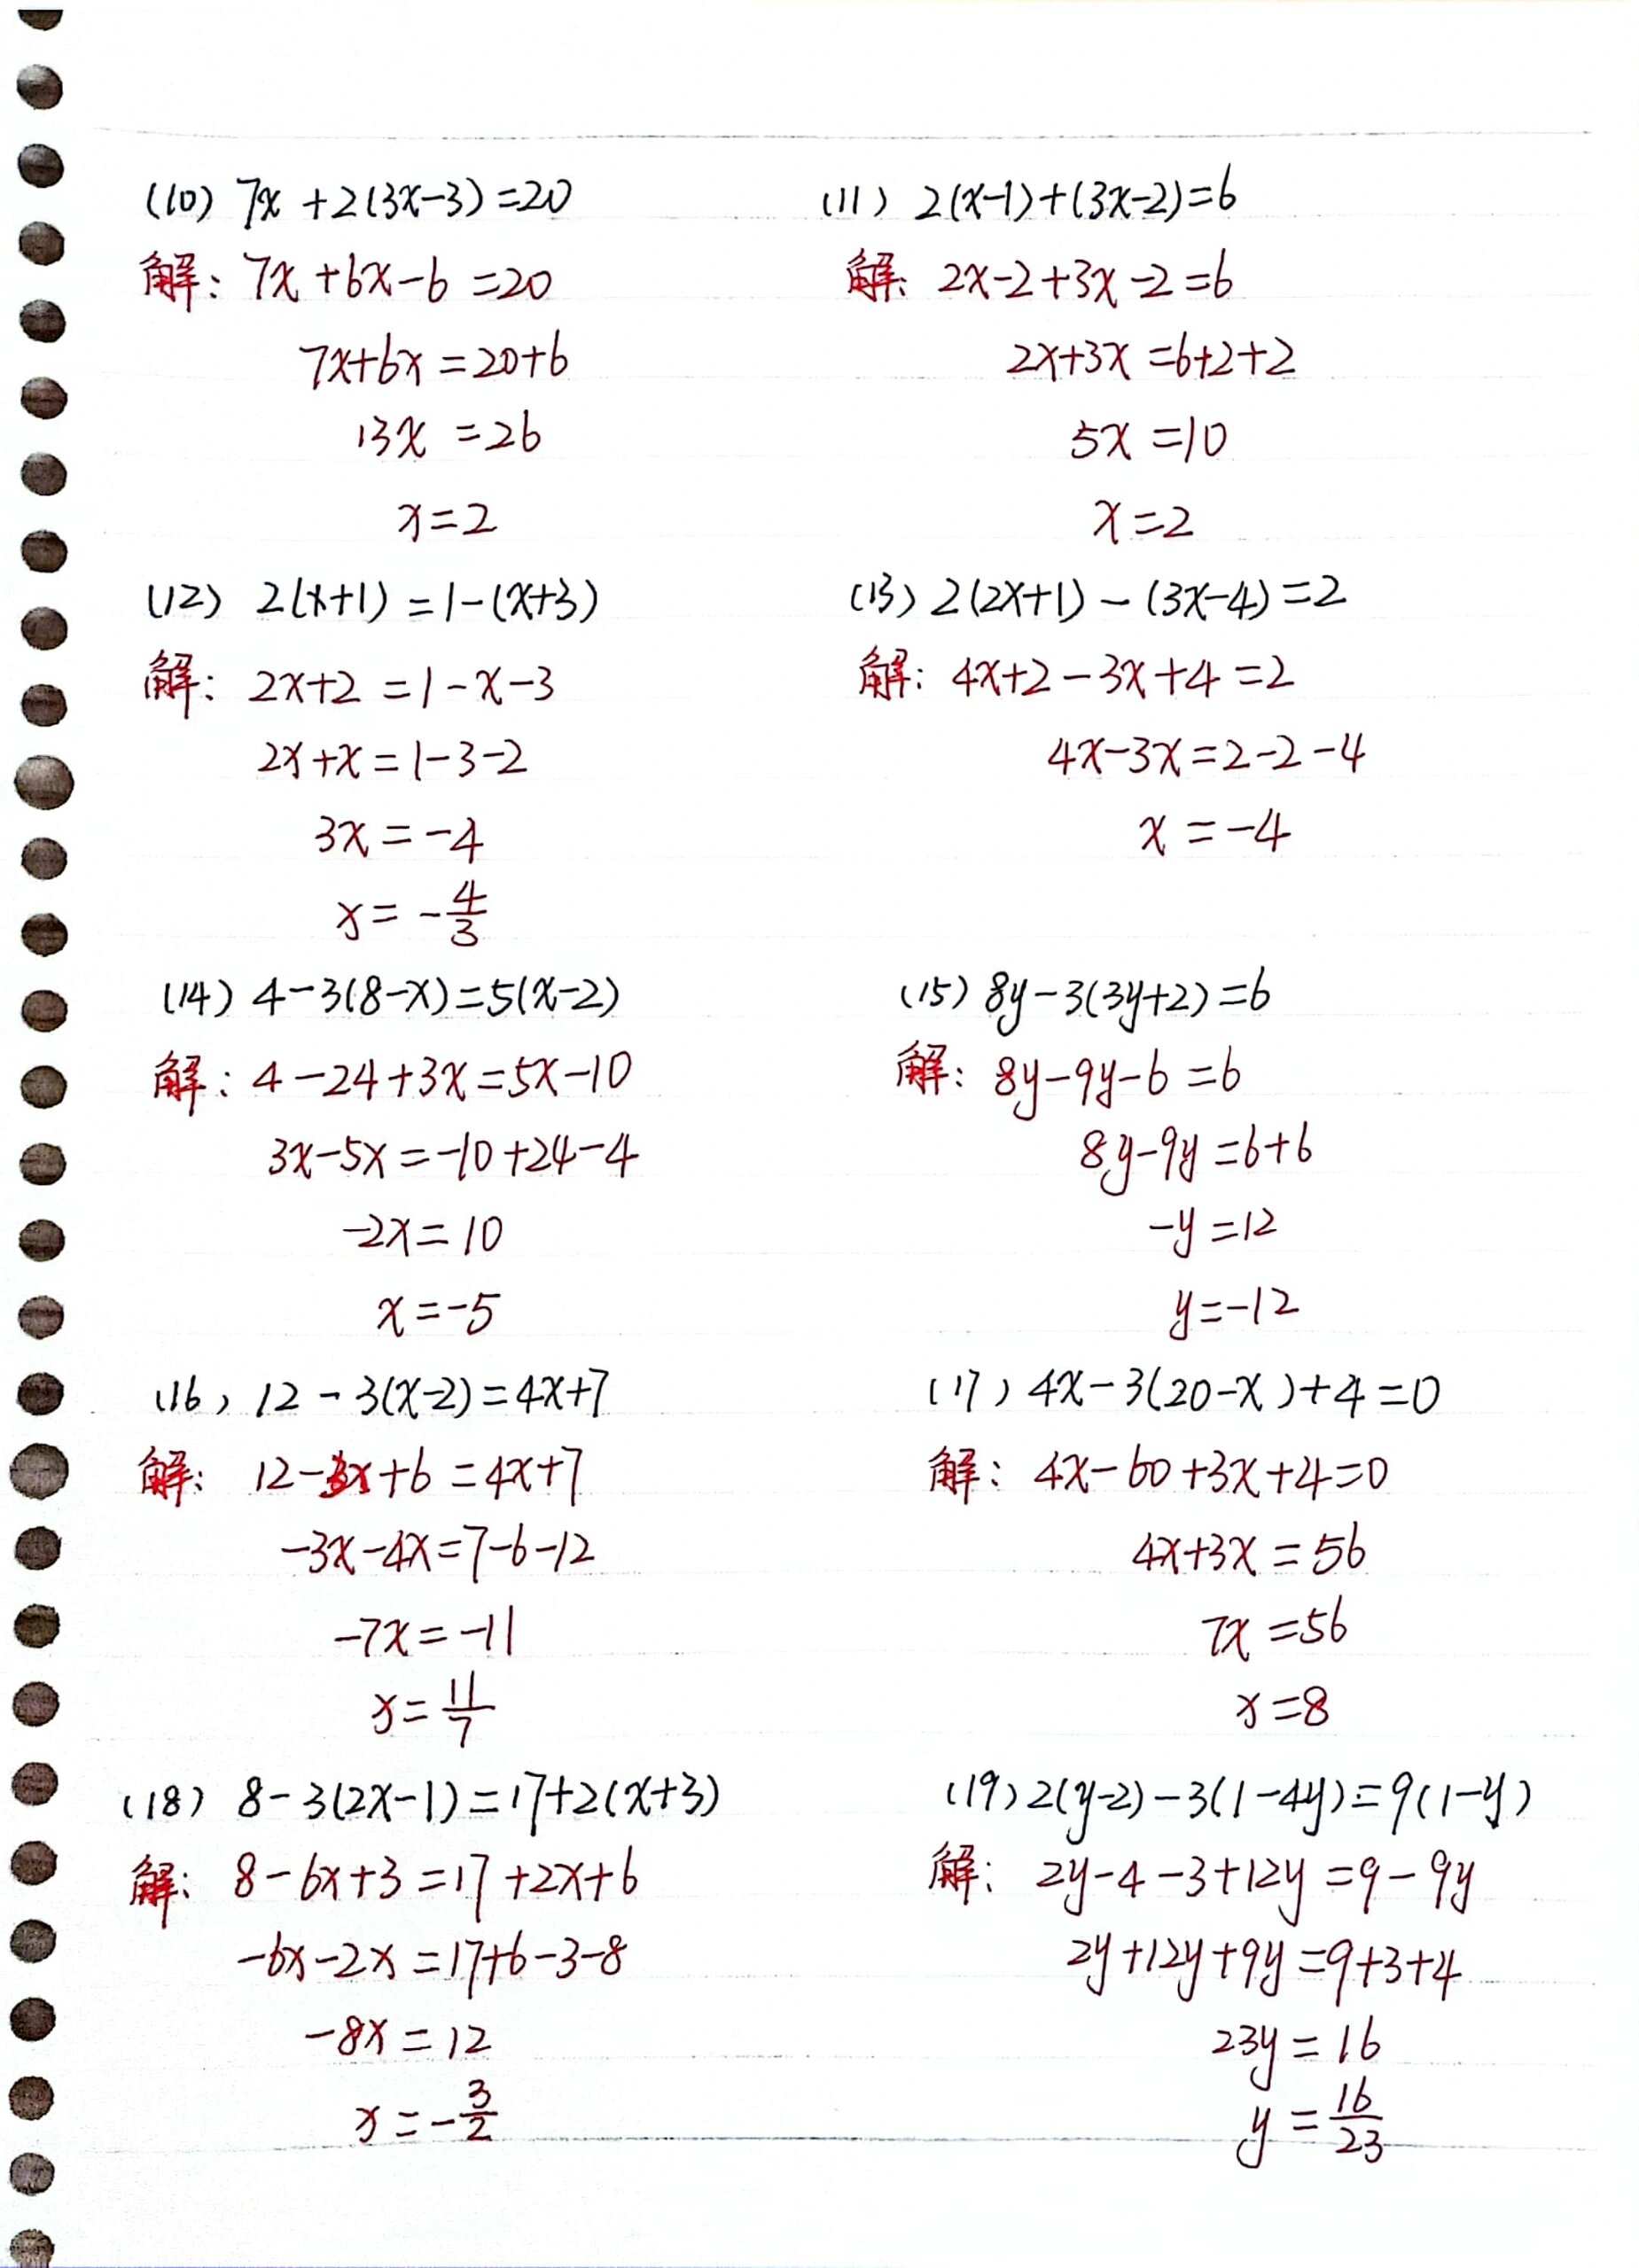 (10) 7x+2(3x-3)=20
解: 7x+6x-6=20
7x+6x=20+6
13x=26
x=2
(11) 2(x-1)+(3x-2)=6
解: 2x-2+3x-2=6
2x+3x=6+2+2
5x=10
x=2
(12) 2(x+1)=1-(x+3)
解: 2x+2=1-x-3
2x+x=1-3-2
3x=-4
x=-4/3
(13) 2(2x+1)-(3x-4)=2
解: 4x+2-3x+4=2
4x-3x=2-2-4
x=-4
(14) 4-3(8-x)=5(x-2)
解: 4-24+3x=5x-10
3x-5x=-10+24-4
-2x=10
x=-5
(15) 8y-3(3y+2)=6
解: 8y-9y-6=6
8y-9y=6+6
-y=12
y=-12
(16) 12-3(x-2)=4x+7
解: 12-3x+6=4x+7
-3x-4x=7-6-12
-7x=-11
x=11/7
(17) 4x-3(20-x)+4=0
解: 4x-60+3x+4=0
4x+3x=56
7x=56
x=8
(18) 8-3(2x-1)=17+2(x+3)
解: 8-6x+3=17+2x+6
-6x-2x=17+6-3-8
-8x=12
x=-3/2
(19) 2(y-2)-3(1-4y)=9(1-y)
解: 2y-4-3+12y=9-9y
2y+12y+9y=9+3+4
23y=16
y=16/23